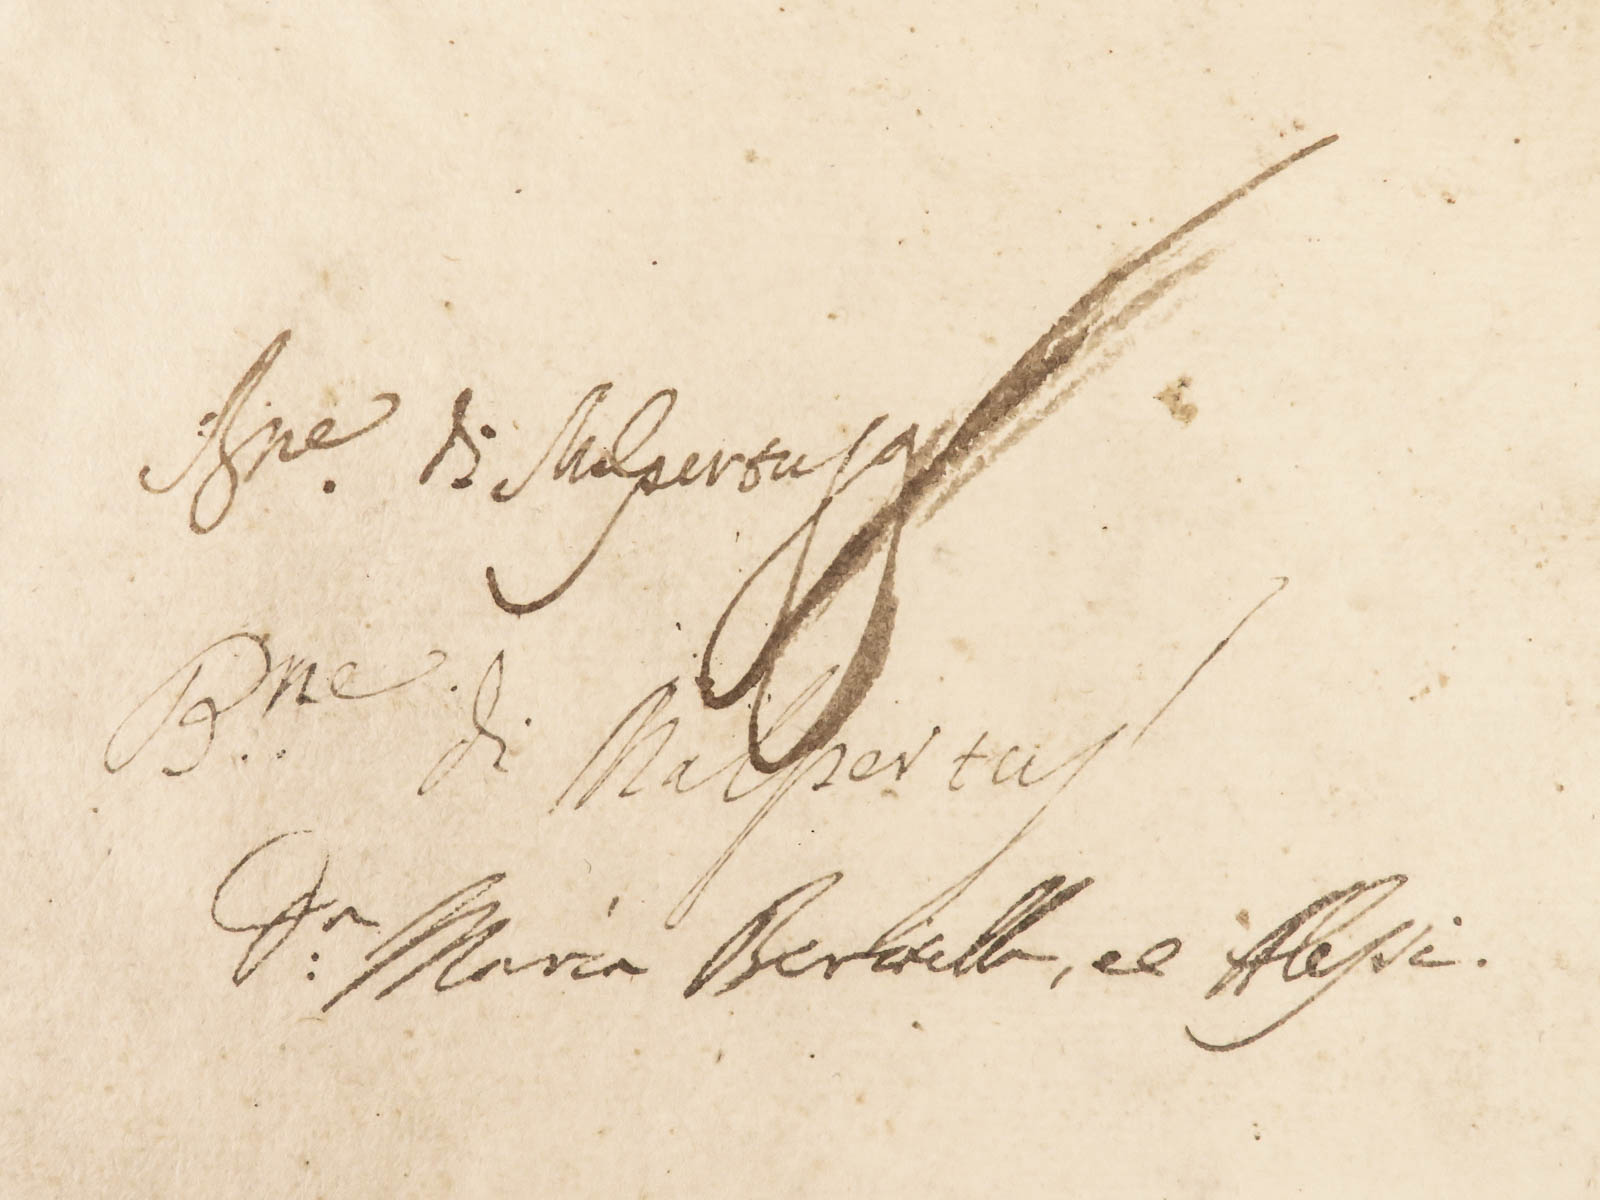 Bne. di Malpertuso
Bne. di Malpertus
Dn: Maria Bertarella, ee Alessi.